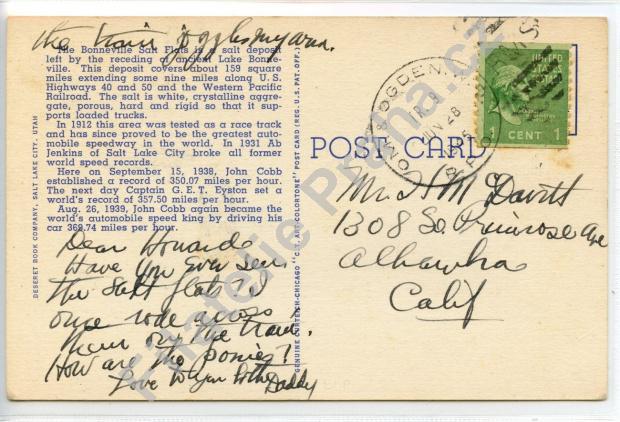 the train joggles my arm.
The Bonneville Salt Flats is a salt deposit
left by the receding of ancient Lake Bonne-
ville. This deposit covers about 159 square
miles extending some nine miles along U. S.
Highways 40 and 50 and the Western Pacific
Railroad. The salt is white, crystalline aggre-
gate, porous, hard and rigid so that it sup-
ports loaded trucks.
In 1912 this area was tested as a race track
and has since proved to be the greatest auto-
mobile speedway in the world. In 1931 Ab
Jenkins of Salt Lake City broke all former
world speed records.
Here on September 15, 1938, John Cobb
established a record of 350.07 miles per hour.
The next day Captain G. E. T. Eyston set a
world's record of 357.50 miles per hour.
Aug. 26, 1939, John Cobb again became the
world's automobile speed king by driving his
car 368.74 miles per hour.
Dear Howard
Have you ever seen
the Salt flats? I
once rode across
them on the train.
How are the ponies?
Love to your
Daddy
DESERET BOOK COMPANY, SALT LAKE CITY, UTAH
GENUINE CURTEICH-CHICAGO "C. T. ART-COLORTONE" POST CARD (REG. U. S. PAT. OFF.)
POST CARD
OGDEN
JUN 28
UNITED
STATES
1 CENT 1
Mr. J M McDavitt
1308 So. Primrose Ave
Alhambra
Calif
Filatelie Praha.cz